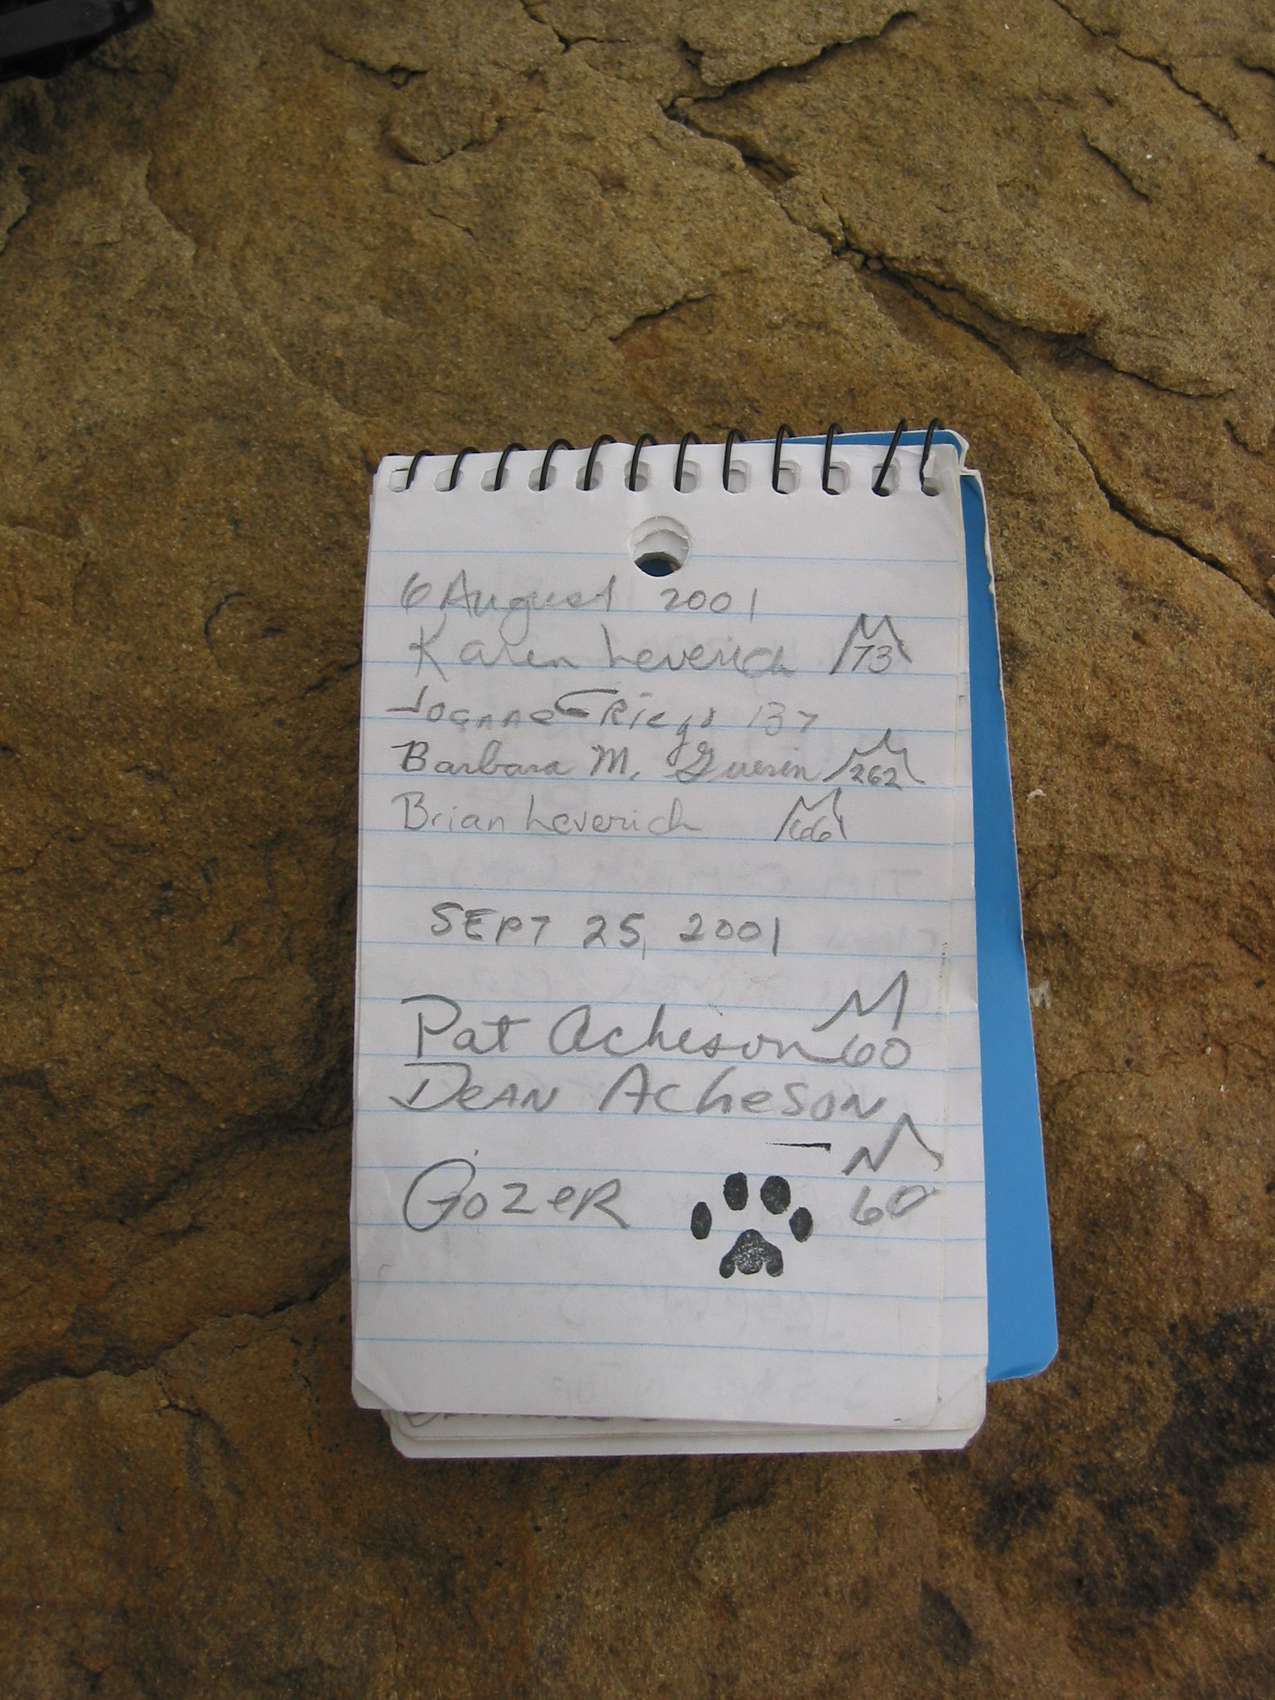 6 August 2001
Karen Leverich 73
Joanne Griego 137
Barbara M. Guerin 262
Brian Leverich 66
SEPT 25, 2001
Pat Acheson 60
DEAN ACHESON
60
GOZER